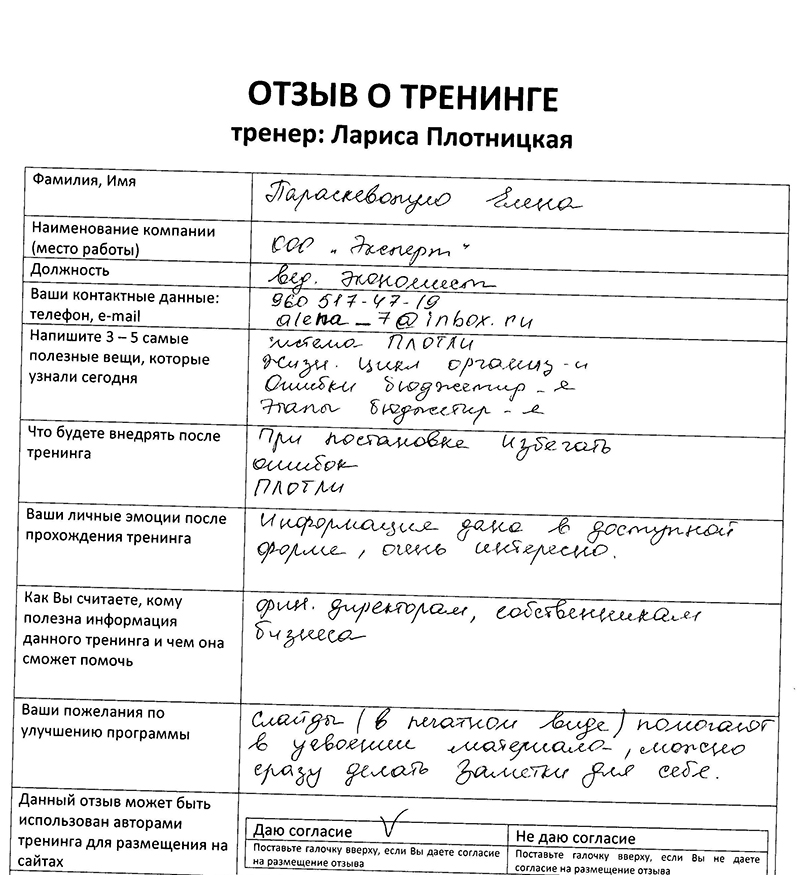 ОТЗЫВ О ТРЕНИНГЕ
тренер: Лариса Плотницкая
Фамилия, Имя
Параскевопуло Елена
Наименование компании
(место работы)
ООО „Эксперт"
Должность
вед. экономист
Ваши контактные данные:
телефон, e-mail
960 517-47-19
alena_7@inbox.ru
Напишите 3 – 5 самые
полезные вещи, которые
узнали сегодня
система ПЛОТЛИ
Жизн. цикл организ-и
Ошибки бюджетир-е
Этапы бюджетир-е
Что будете внедрять после
тренинга
При постановке избегать
ошибок
ПЛОТЛИ
Ваши личные эмоции после
прохождения тренинга
Информация дана в доступной
форме, очень интересно.
Как Вы считаете, кому
полезна информация
данного тренинга и чем она
сможет помочь
фин. директорам, собственникам
бизнеса
Ваши пожелания по
улучшению программы
Слайды (в печатном виде) помогают
в усвоении материала, можно
сразу делать заметки для себе.
Данный отзыв может быть
использован авторами
тренинга для размещения на
сайтах
Даю согласие V
Поставьте галочку вверху, если Вы даете согласие
на размещение отзыва
Не даю согласие
Поставьте галочку вверху, если Вы не даете
согласие на размещение отзыва